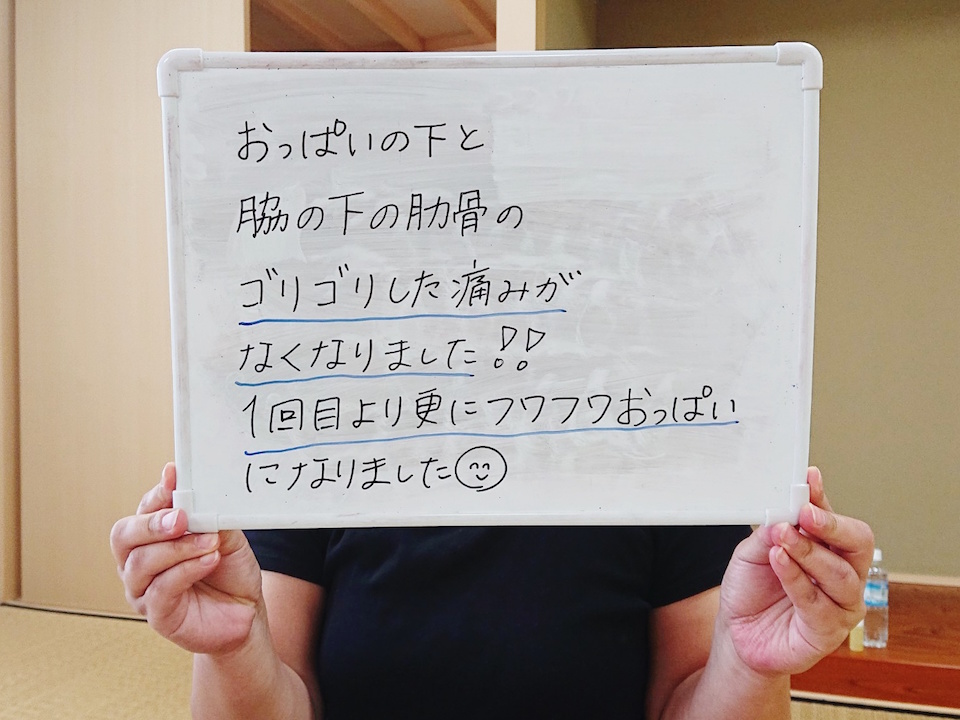 おっぱいの下と
脇の下の肋骨の
ゴリゴリした痛みが
なくなりました!!
1回目より更にフワフワおっぱい
になりました